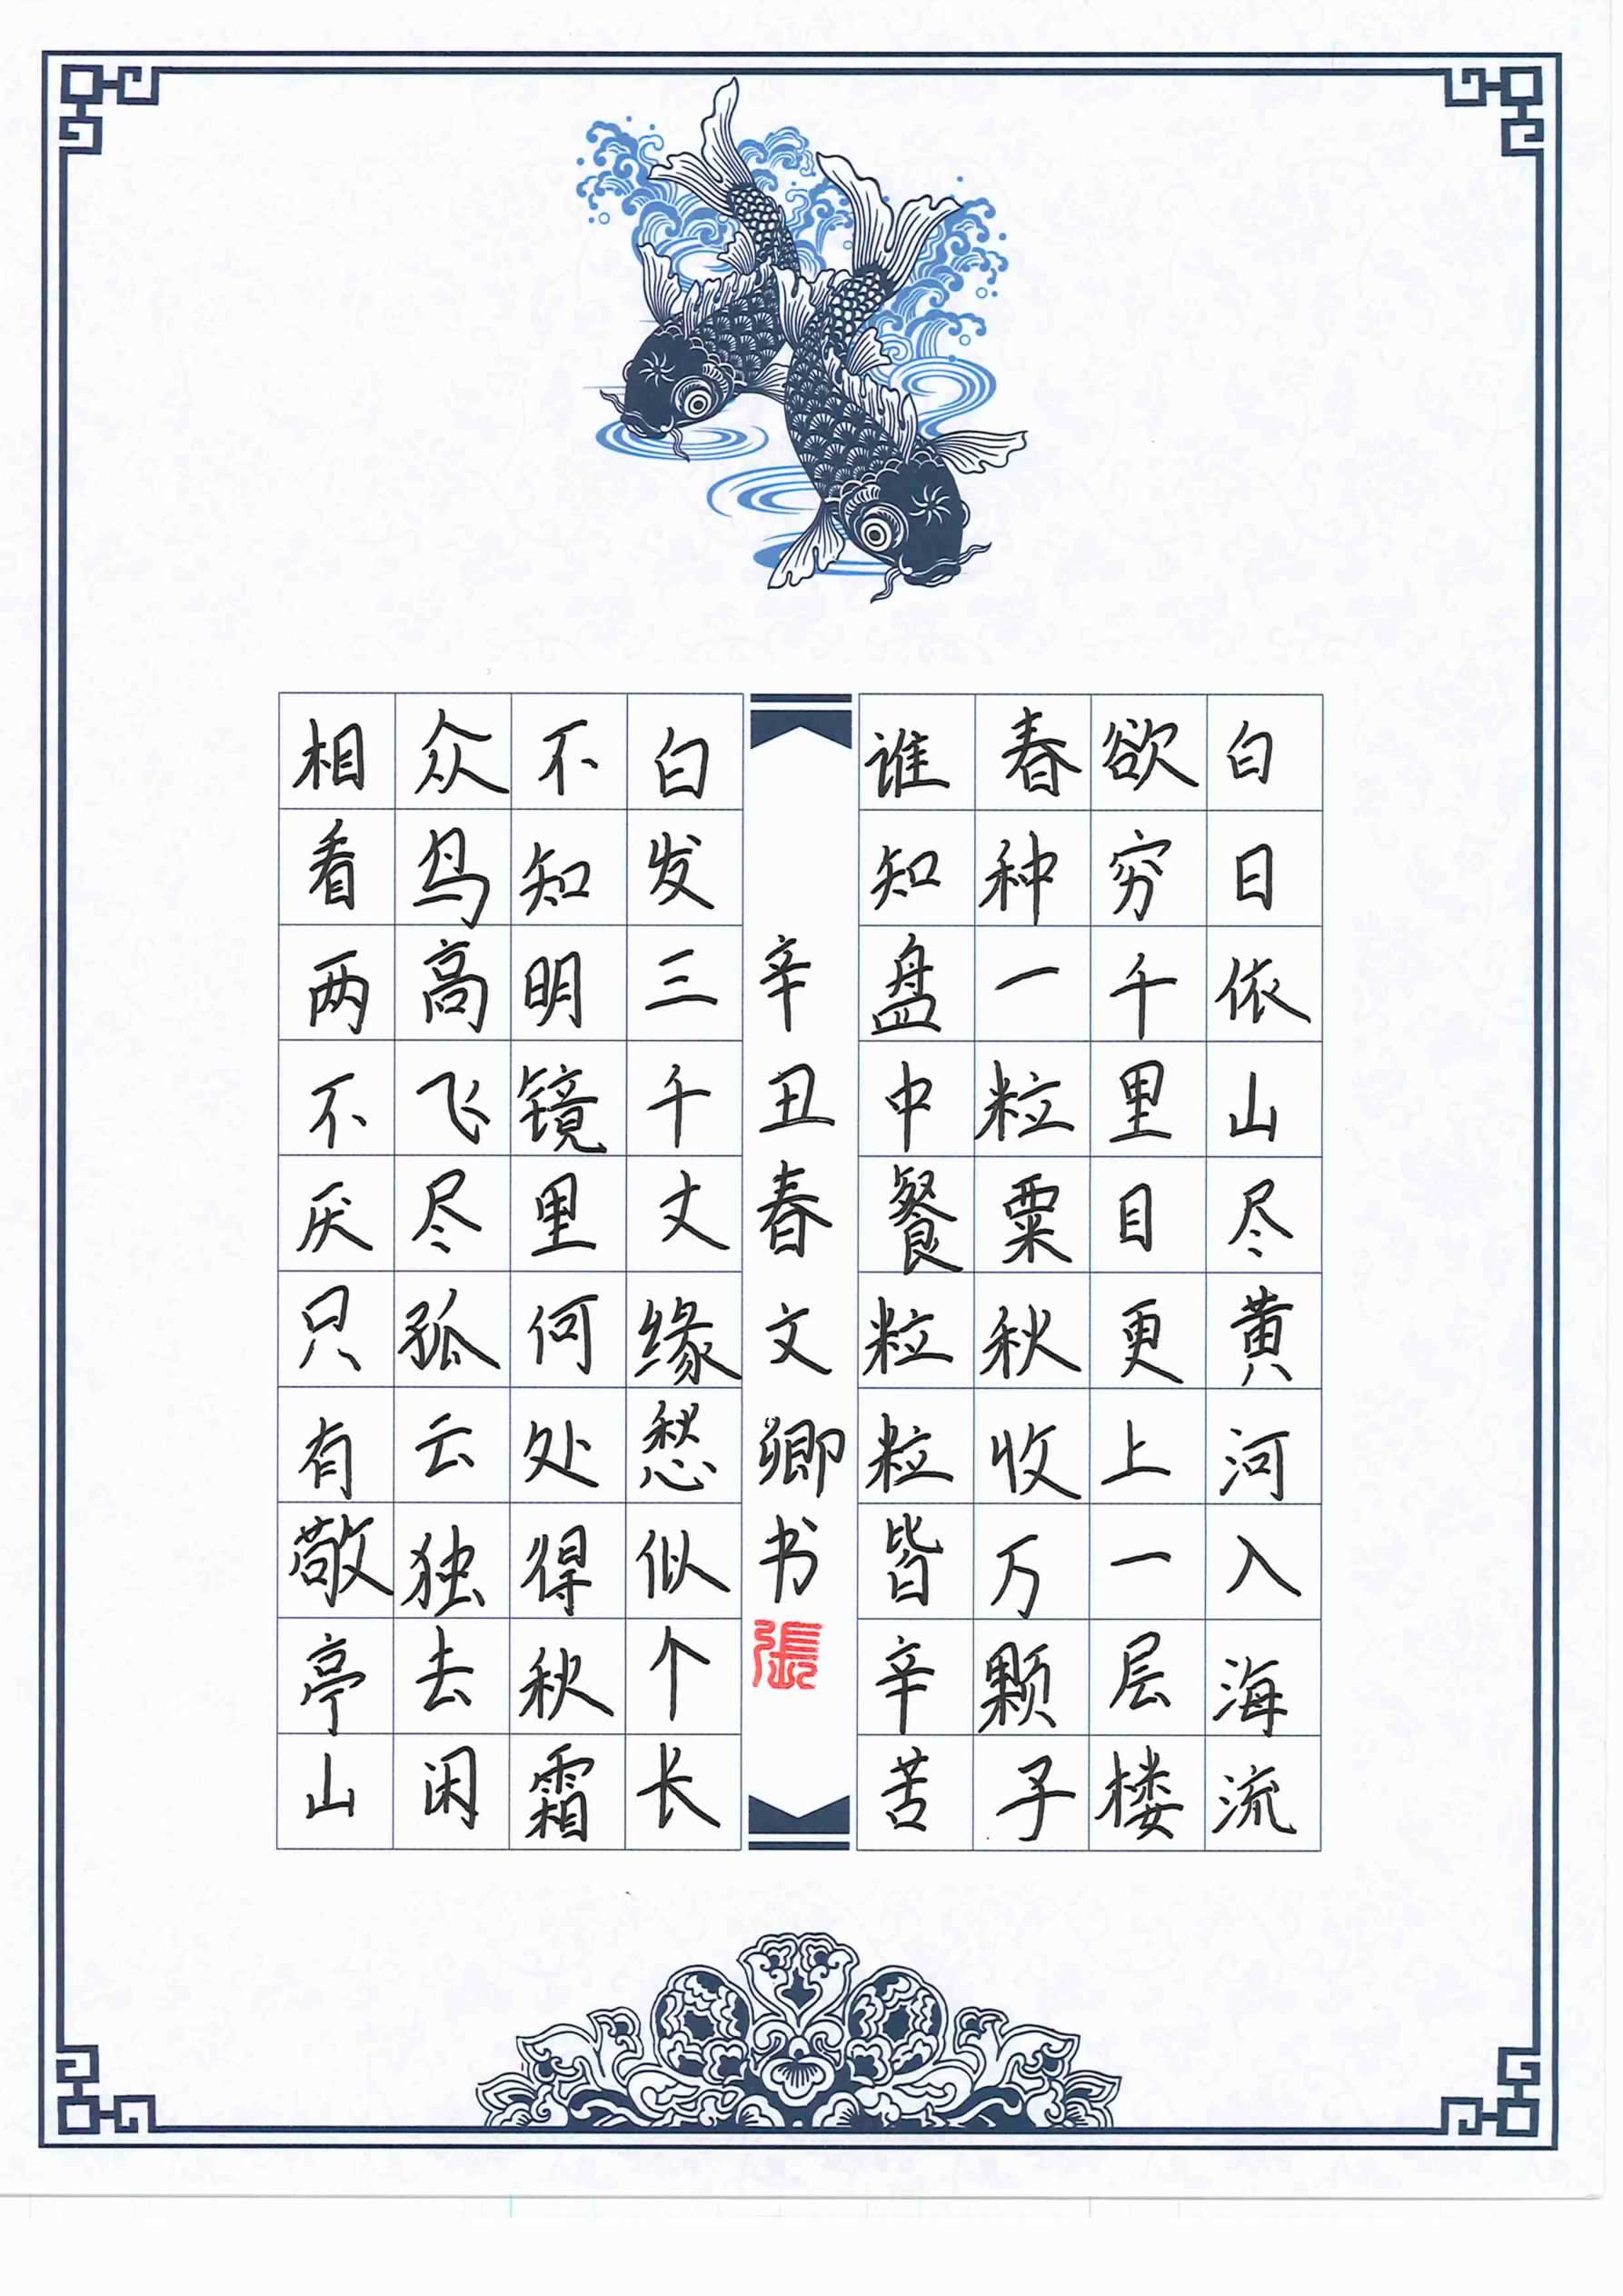 白日依山尽黄河入海流
欲穷千里目更上一层楼
春种一粒粟秋收万颗子
谁知盘中餐粒粒皆辛苦
辛丑春文卿书
張
白发三千丈缘愁似个长
不知明镜里何处得秋霜
众鸟高飞尽孤云独去闲
相看两不厌只有敬亭山